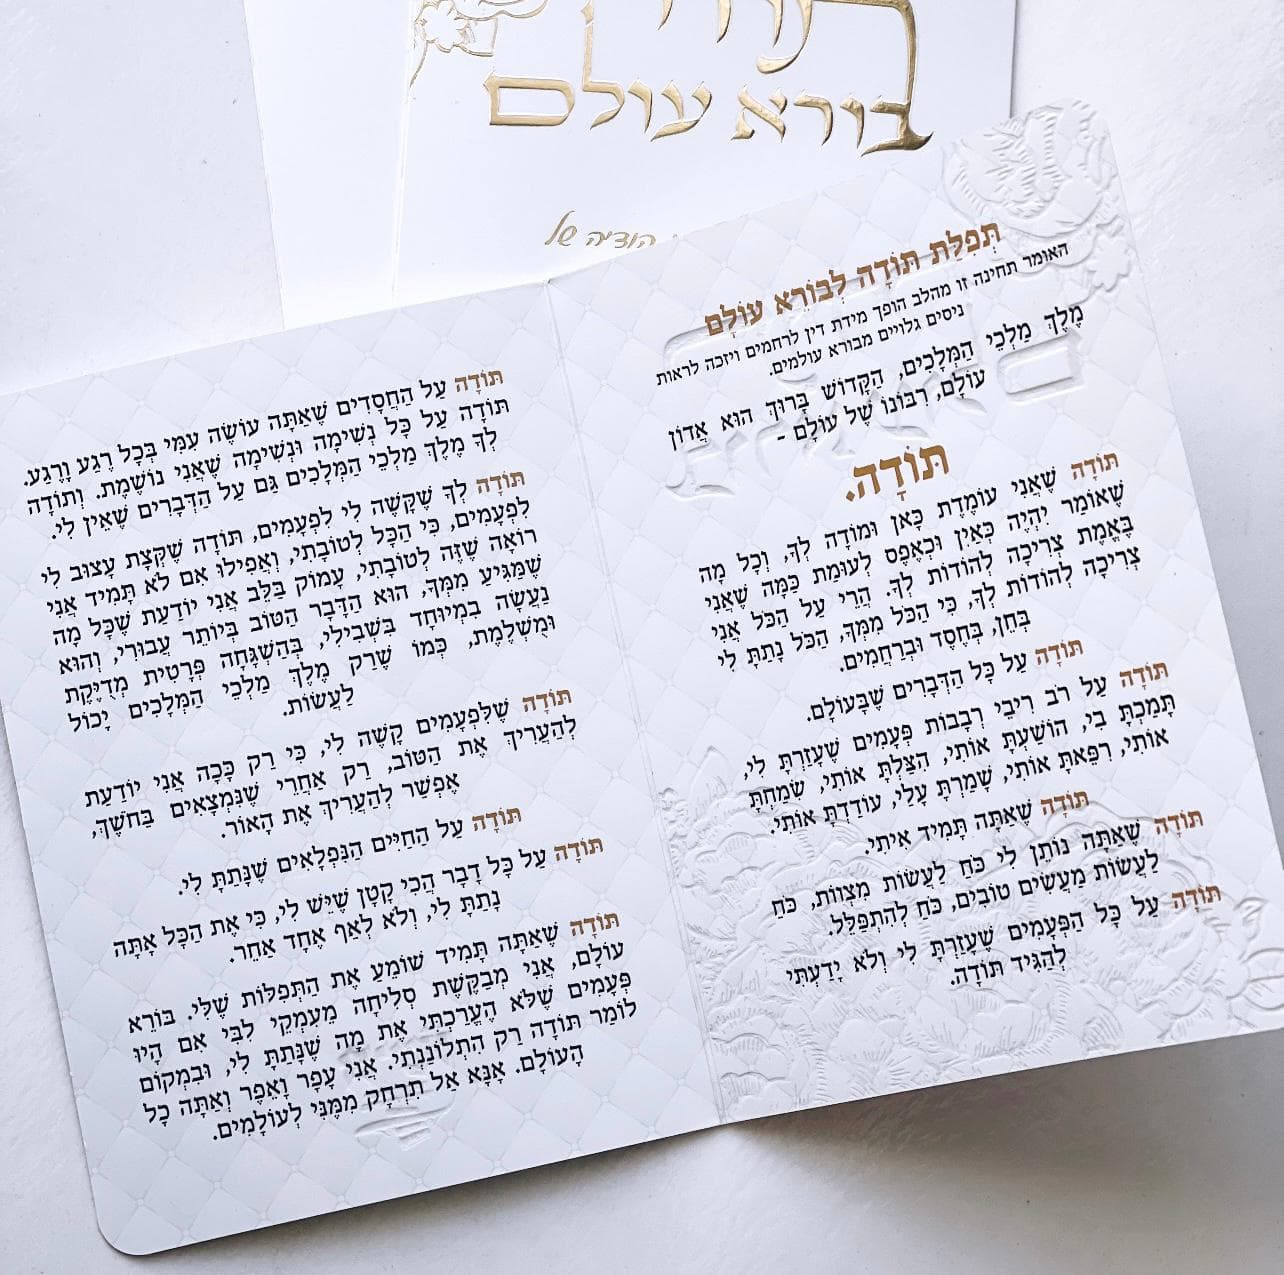 בורא עולם
הודיה של
תְּפִלַּת תּוֹדָה לְבוֹרֵא עוֹלָם
האומר תחינה זו מהלב הופך מידת דין לרחמים ויזכה לראות
ניסים גלויים מבורא עולמים.
מֶלֶךְ מַלְכֵי הַמְּלָכִים, הַקָּדוֹשׁ בָּרוּךְ הוּא אֲדוֹן
עוֹלָם, רִבּוֹנוֹ שֶׁל עוֹלָם -
תּוֹדָה.
תּוֹדָה שֶׁאֲנִי עוֹמֶדֶת כָּאן וּמוֹדָה לְךָ, וְכָל מַה
שֶׁאוֹמַר יִהְיֶה כְּאַיִן וּכְאֶפֶס לְעוּמַת כַּמָּה שֶׁאֲנִי
בֶּאֱמֶת צְרִיכָה לְהוֹדוֹת לְךָ. הֲרֵי עַל הַכֹּל אֲנִי
צְרִיכָה לְהוֹדוֹת לְךָ, כִּי הַכֹּל מִמְּךָ, הַכֹּל נָתַתָּ לִי
בְּחֵן, בְּחֶסֶד וּבְרַחֲמִים.
תּוֹדָה עַל כָּל הַדְּבָרִים שֶׁבָּעוֹלָם.
תּוֹדָה עַל רֹב רִיבֵי רְבָבוֹת פְּעָמִים שֶׁעָזַרְתָּ לִי,
תָּמַכְתָּ בִּי, הוֹשַׁעְתָּ אוֹתִי, הִצַּלְתָּ אוֹתִי, שִׂמַּחְתָּ
אוֹתִי, רִפֵּאתָ אוֹתִי, שָׁמַרְתָּ עָלַי, עוֹדַדְתָּ אוֹתִי.
תּוֹדָה שֶׁאַתָּה תָּמִיד אִיתִי.
תּוֹדָה שֶׁאַתָּה נוֹתֵן לִי כֹּחַ לַעֲשׂוֹת מִצְווֹת, כֹּחַ
לַעֲשׂוֹת מַעֲשִׂים טוֹבִים, כֹּחַ לְהִתְפַּלֵּל.
תּוֹדָה עַל כָּל הַפְּעָמִים שֶׁעָזַרְתָּ לִי וְלֹא יָדַעְתִּי
לְהַגִּיד תּוֹדָה.
תּוֹדָה עַל הַחֲסָדִים שֶׁאַתָּה עוֹשֶׂה עִמִּי בְּכָל רֶגַע וָרֶגַע.
תּוֹדָה עַל כָּל נְשִׁימָה וּנְשִׁימָה שֶׁאֲנִי נוֹשֶׁמֶת. וְתוֹדָה
לְךָ מֶלֶךְ מַלְכֵי הַמְּלָכִים גַּם עַל הַדְּבָרִים שֶׁאֵין לִי.
תּוֹדָה לְךָ שֶׁקָּשֶׁה לִי לִפְעָמִים, תּוֹדָה שֶׁקְּצָת עָצוּב לִי
לִפְעָמִים, כִּי הַכֹּל לְטוֹבָתִי, וַאֲפִילוּ אִם לֹא תָּמִיד אֲנִי
רוֹאָה שֶׁזֶּה לְטוֹבָתִי, עָמוֹק בַּלֵּב אֲנִי יוֹדַעַת שֶׁכָּל מָה
שֶׁמַּגִּיעַ מִמְּךָ, הוּא הַדָּבָר הַטּוֹב בְּיוֹתֵר עֲבוּרִי, וְהוּא
נַעֲשָׂה בִּמְיוּחָד בִּשְׁבִילִי, בְּהַשְׁגָּחָה פְּרָטִית מְדֻיֶּקֶת
וּמֻשְׁלֶמֶת, כְּמוֹ שֶׁרַק מֶלֶךְ מַלְכֵי הַמְּלָכִים יָכוֹל
לַעֲשׂוֹת.
תּוֹדָה שֶׁלִּפְעָמִים קָשֶׁה לִי, כִּי רַק כָּכָה אֲנִי יוֹדַעַת
לְהַעֲרִיךְ אֶת הַטּוֹב, רַק אַחֲרֵי שֶׁנִּמְצָאִים בַּחֹשֶׁךְ,
אֶפְשַׁר לְהַעֲרִיךְ אֶת הָאוֹר.
תּוֹדָה עַל הַחַיִּים הַנִּפְלָאִים שֶׁנָּתַתָּ לִי.
תּוֹדָה עַל כָּל דָּבָר הֲכִי קָטָן שֶׁיֵּשׁ לִי, כִּי אֶת הַכֹּל אַתָּה
נָתַתָּ לִי, וְלֹא לְאַף אֶחָד אַחֵר.
תּוֹדָה שֶׁאַתָּה תָּמִיד שׁוֹמֵעַ אֶת הַתְּפִלּוֹת שֶׁלִּי. בּוֹרֵא
עוֹלָם, אֲנִי מְבַקֶּשֶׁת סְלִיחָה מֵעִמְקֵי לִבִּי אִם הָיוּ
פְּעָמִים שֶׁלֹּא הֶעֱרַכְתִּי אֶת מָה שֶׁנָּתַתָּ לִי, וּבִמְקוֹם
לוֹמַר תּוֹדָה רַק הִתְלוֹנַנְתִּי. אֲנִי עָפָר וָאֵפֶר וְאַתָּה כָּל
הָעוֹלָם. אָנָּא אַל תִּרְחַק מִמֶּנִּי לְעוֹלָמִים.